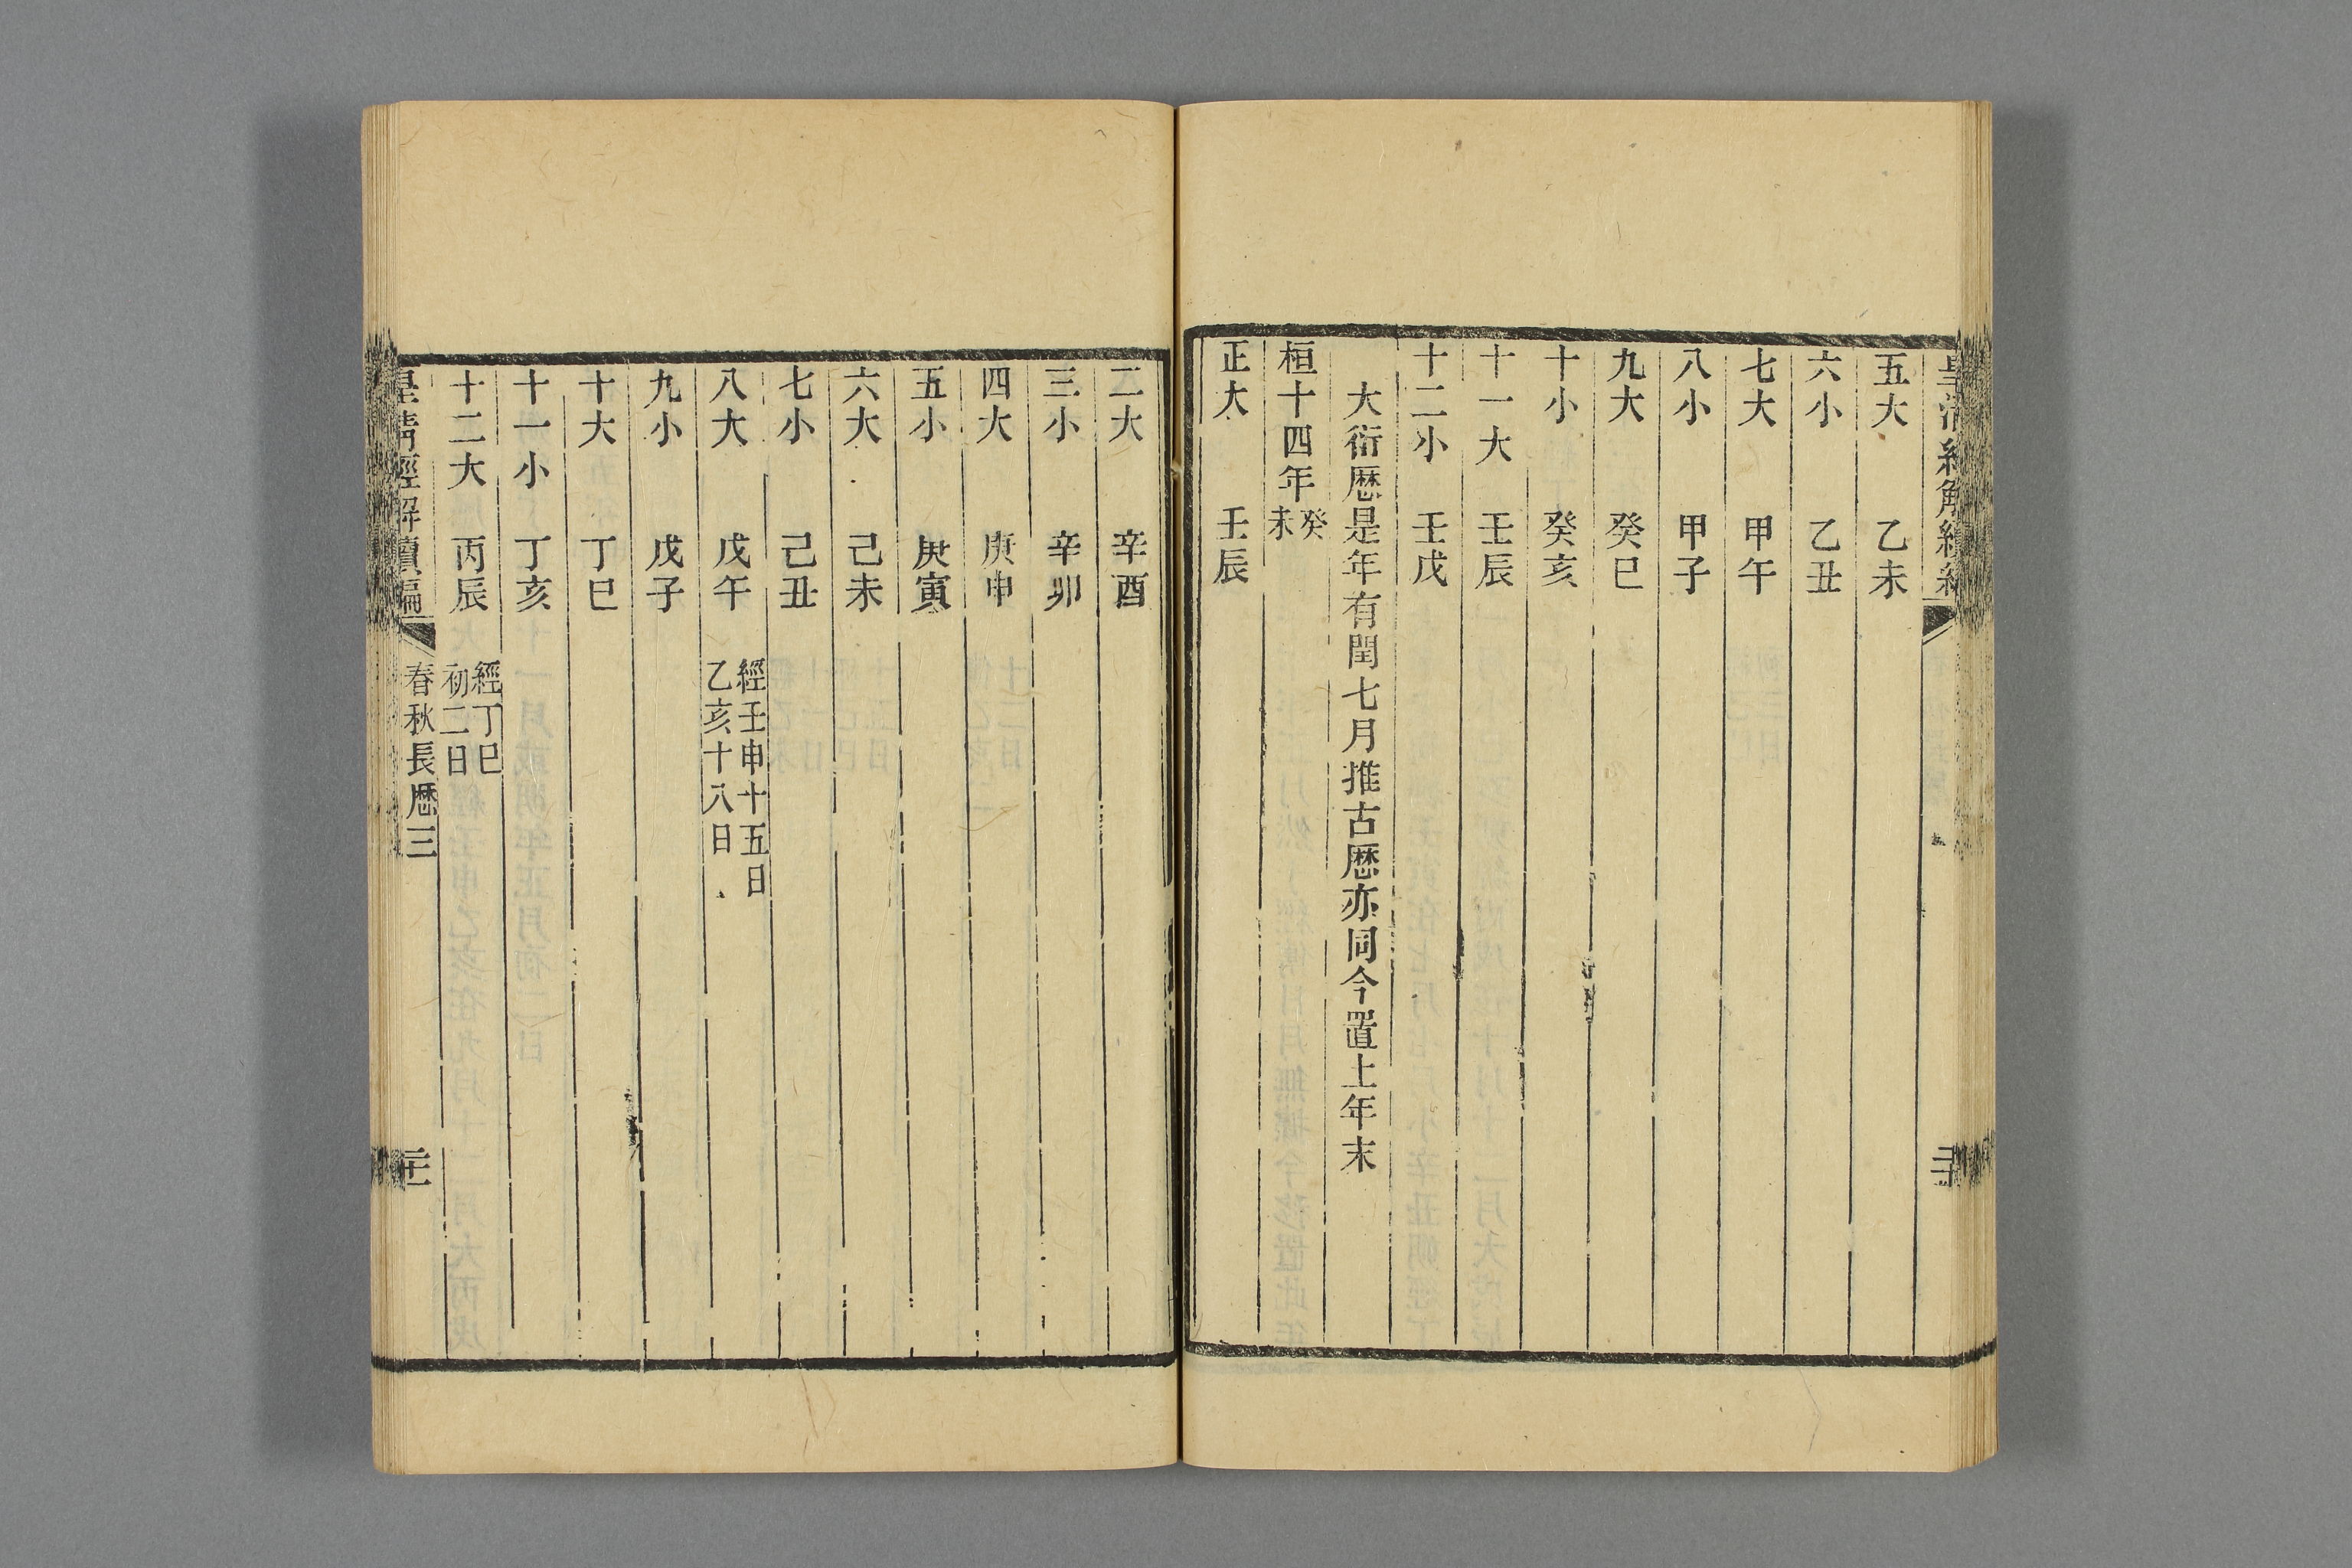 五大 乙未
六小 乙丑
七大 甲午
八小 甲子
九大 癸巳
十小 癸亥
十一大 壬辰
十二小 壬戌
大衍厯是年有閏七月推古厯亦同今置上年末
桓十四年癸未
正大 壬辰
二大 辛酉
三小 辛卯
四大 庚申
五小 庚寅
六大 己未
七小 己丑
八大 戊午 經壬申十五日
乙亥十八日
九小 戊子
十大 丁巳
十一小 丁亥
十二大 丙辰 經丁巳
初二日
皇清經解續編 春秋長厯三